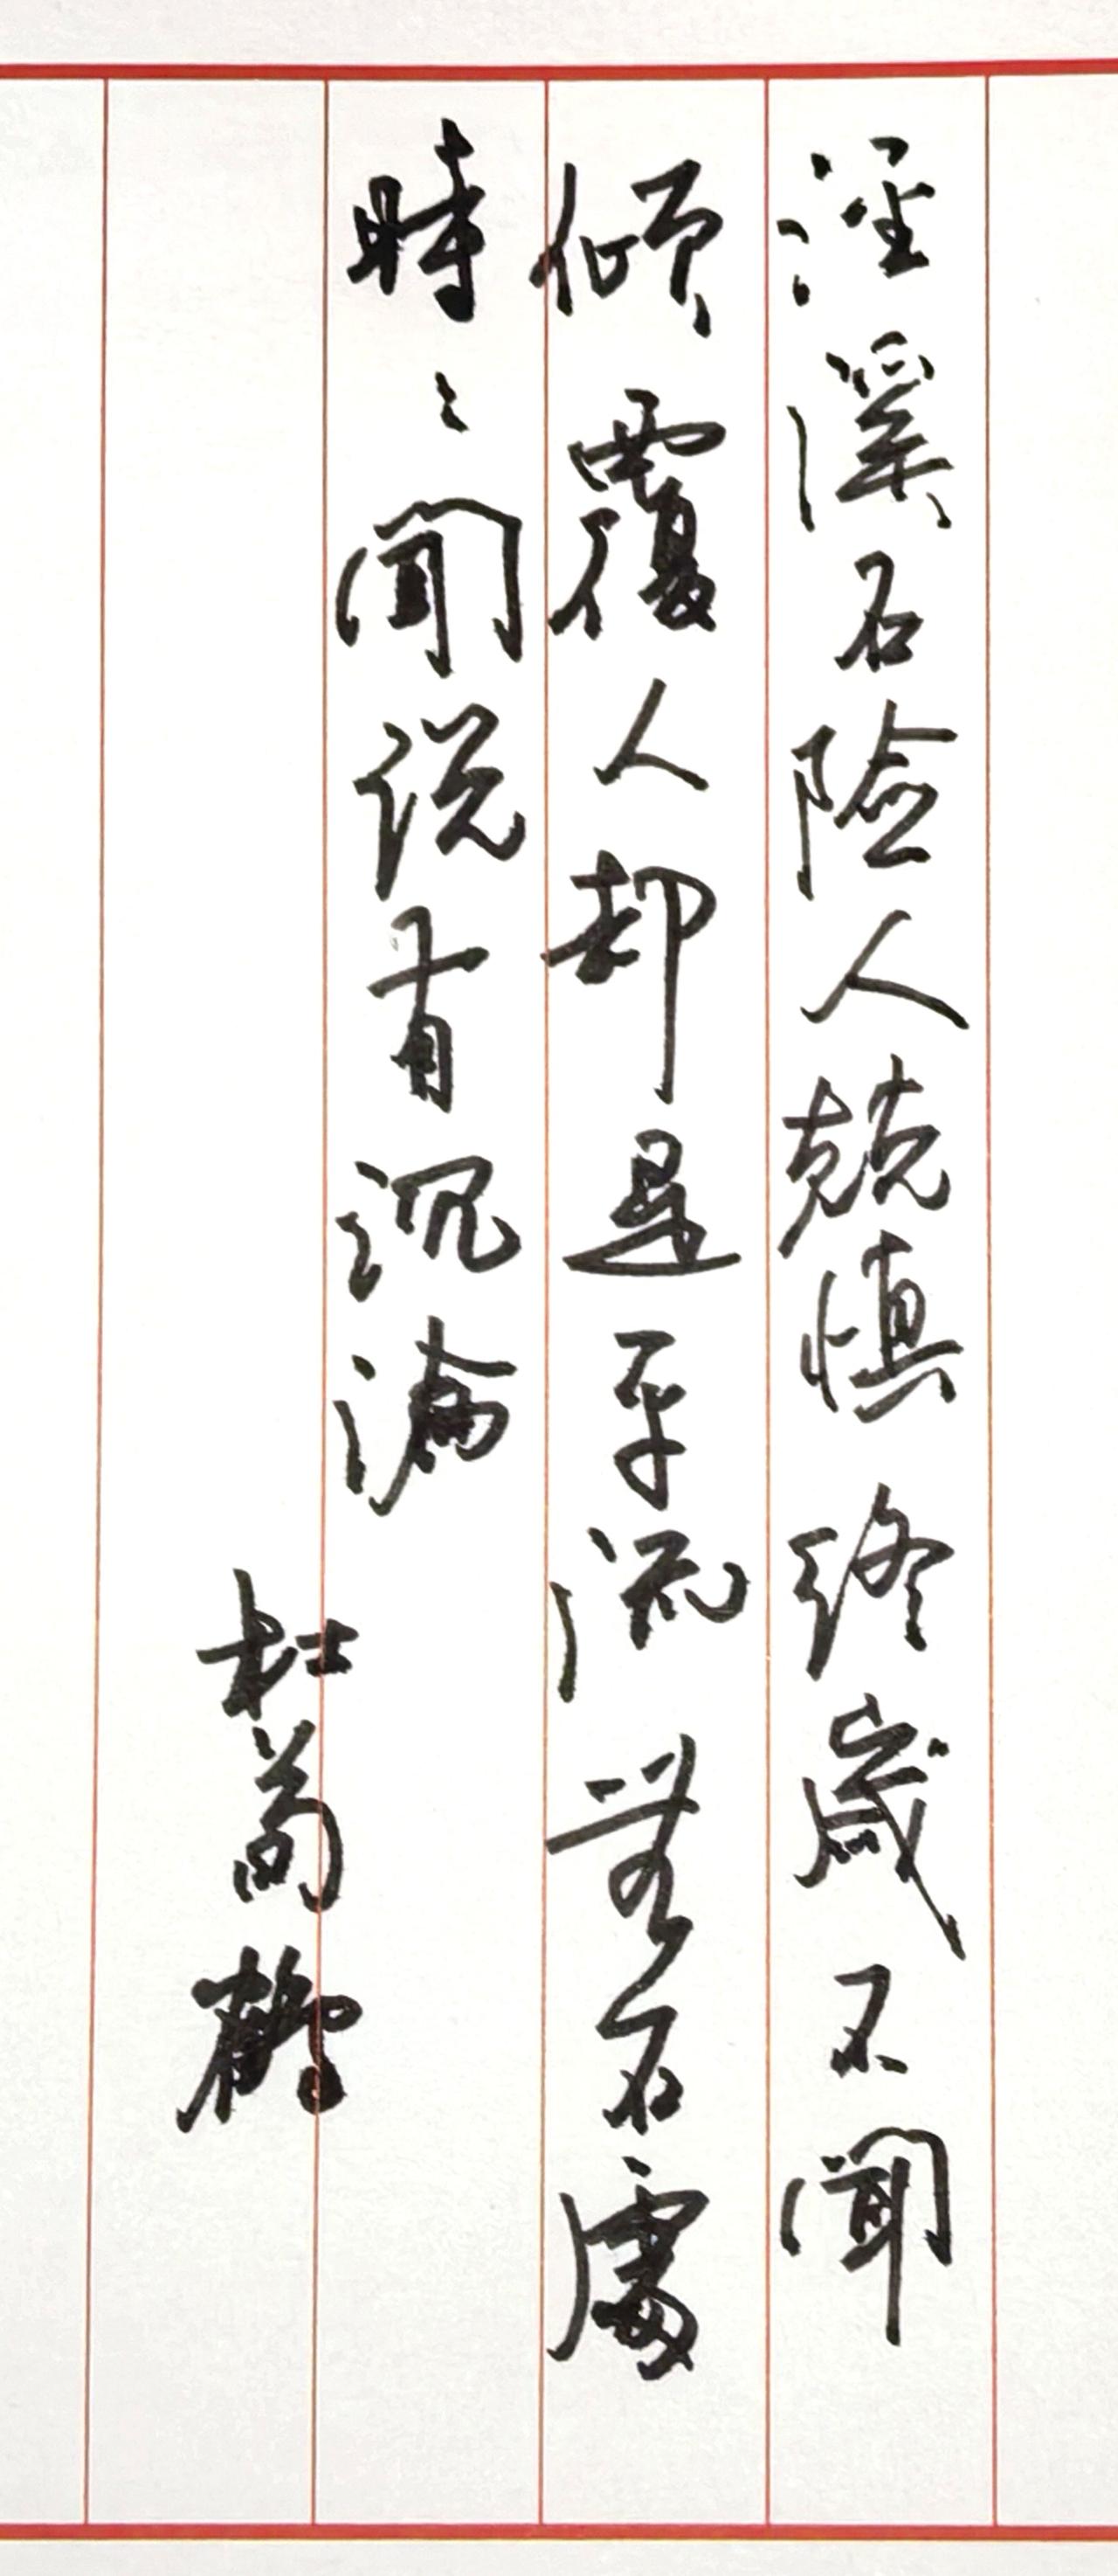 涇溪石險人兢慎終歲不聞
傾覆人却是平流無石處
時〻聞說有沉淪
杜荀鶴